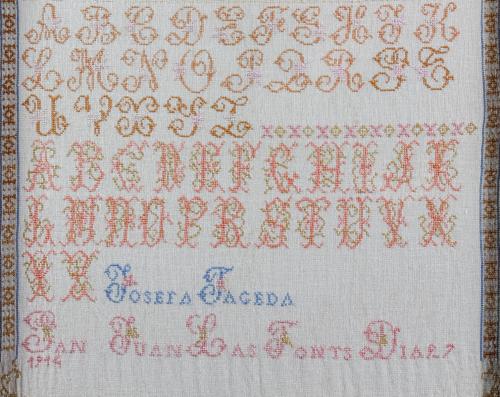 A B C D E F G H I J K
L M N O P Q R S T
U V X Y Z
A B C D E F G H I J K
L M N O P R S T U V X
Josefa Tageda
San Juan Las Fonts Dia 27
1914